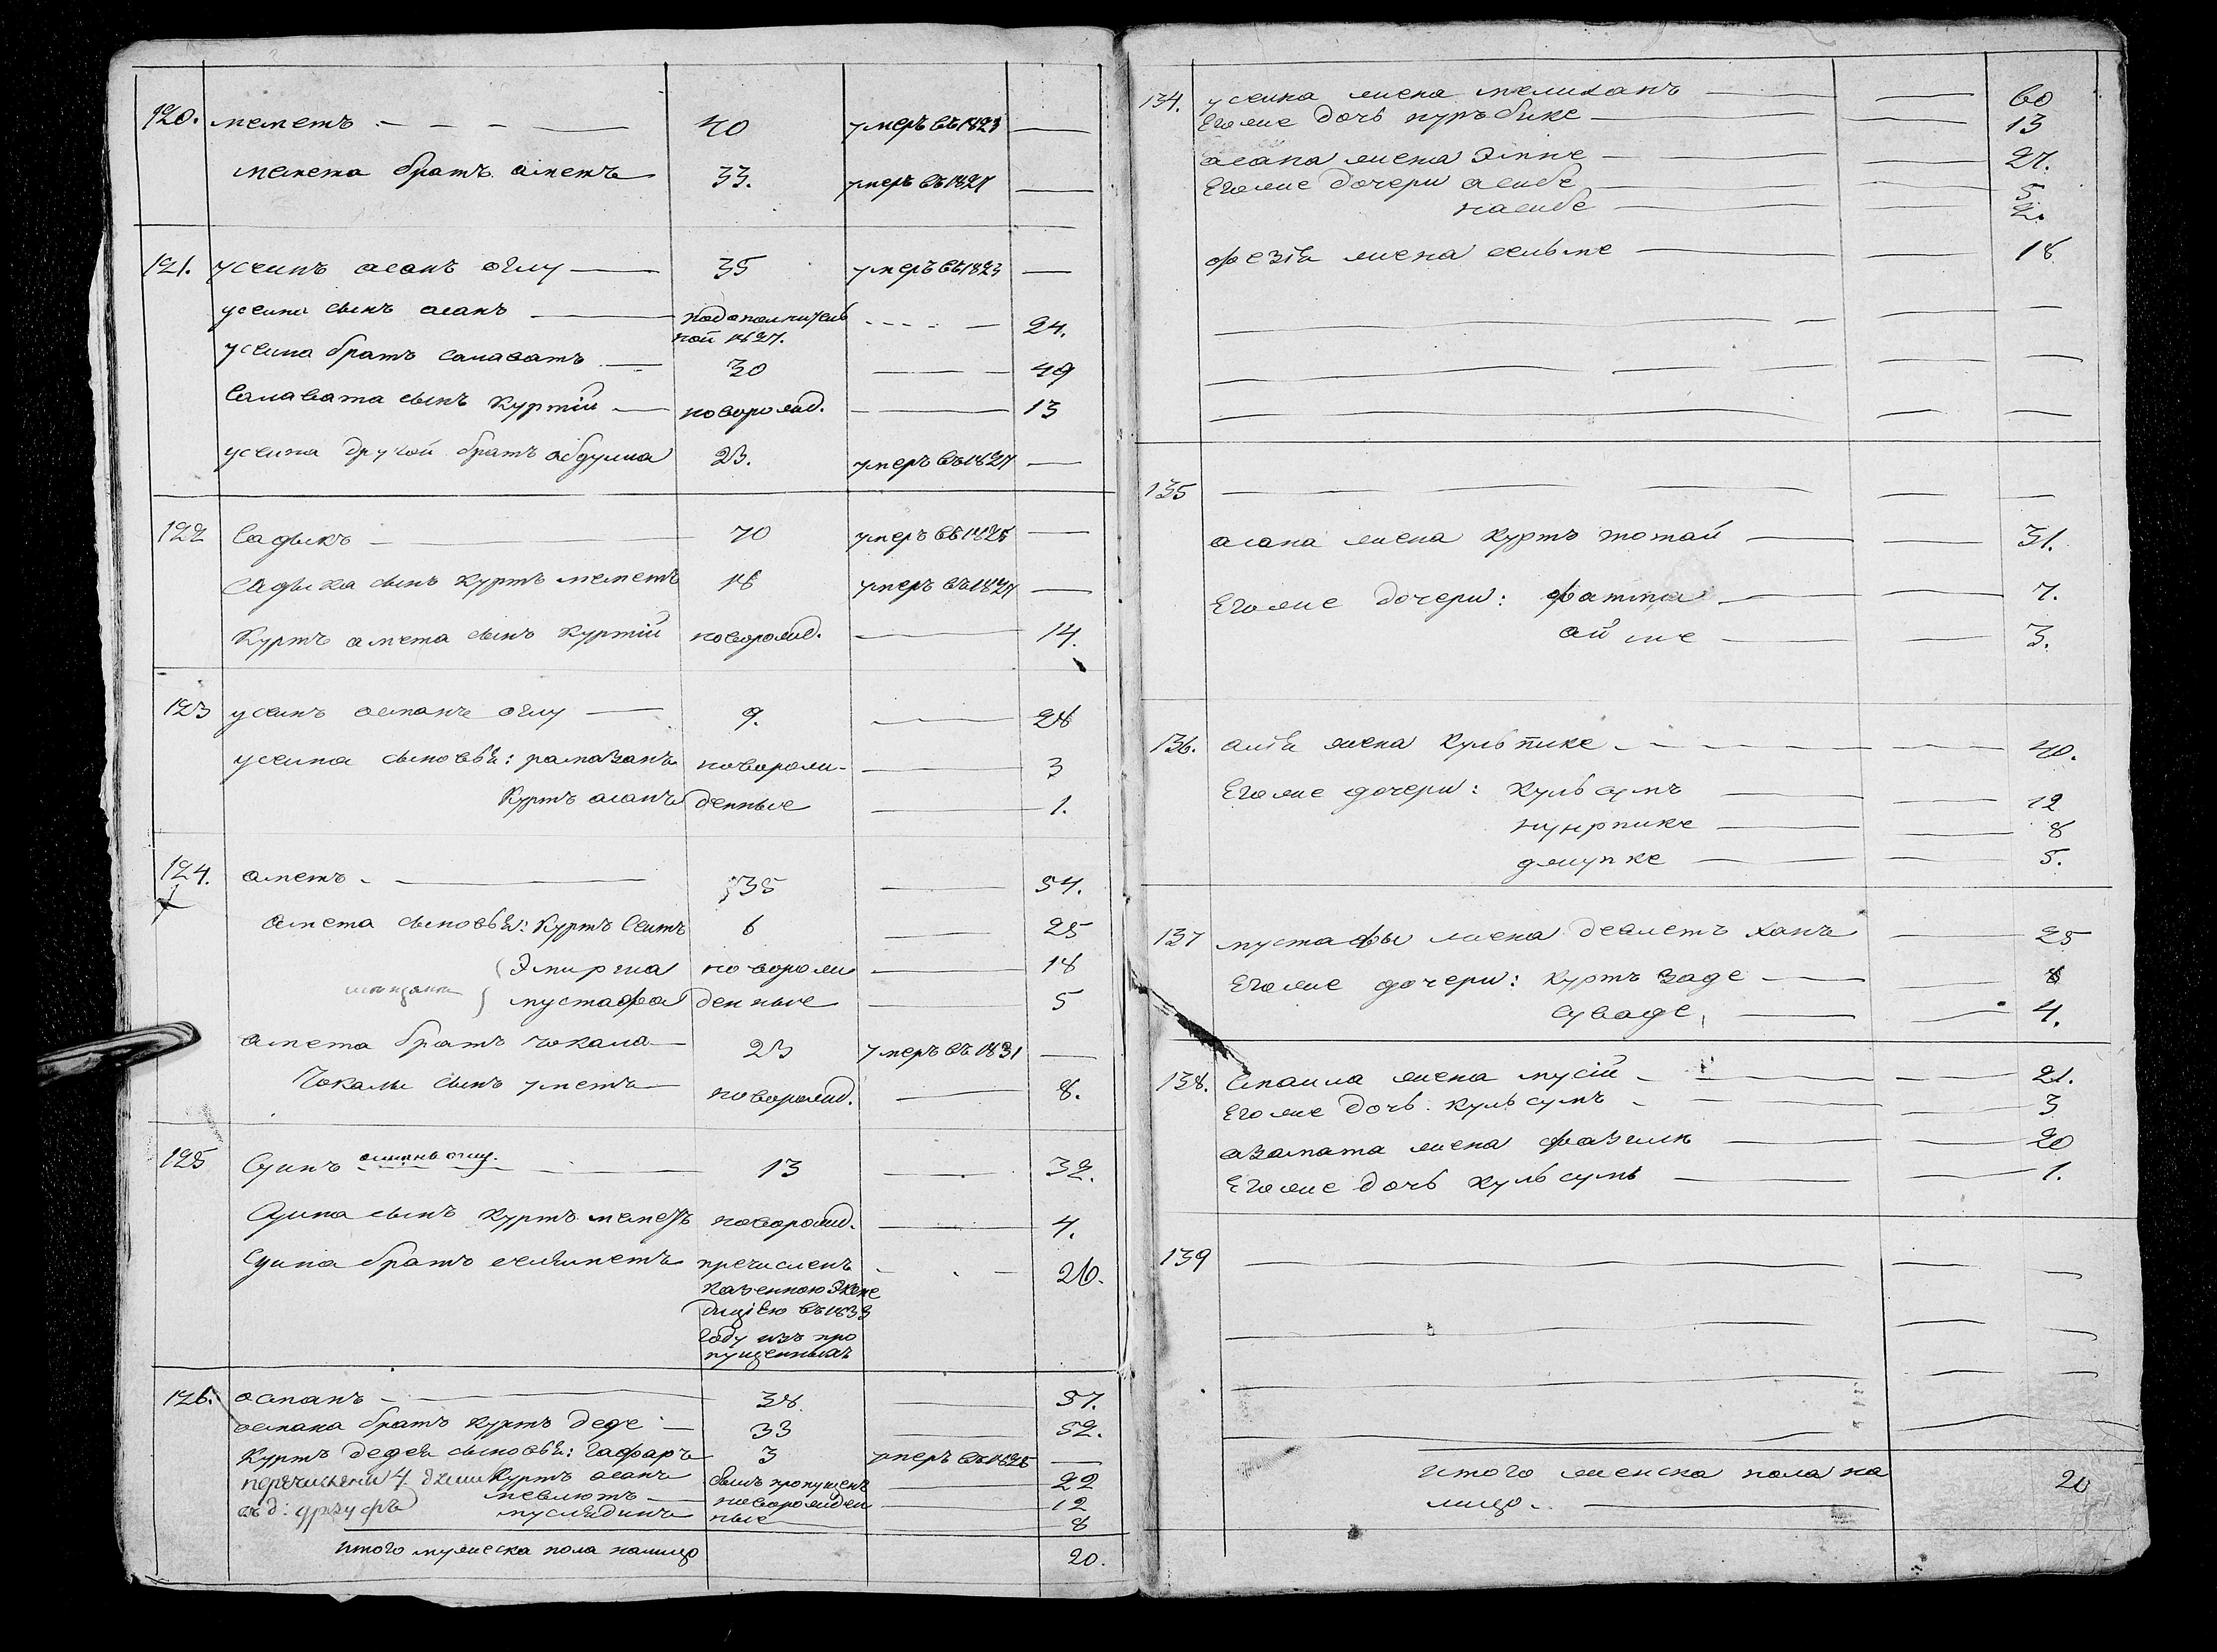 120. меметъ 40 умеръ въ 1823
мемета братъ аметъ 33. умеръ въ 1827
121. усеинъ асанъ оглу 35 умеръ въ 1823
усеина сынъ асанъ 24.
ной 1827.
усеина братъ салаватъ 30 49
Салавата сынъ Куртій новорожд. 13
усеина другой братъ абдулла 23. умеръ въ 1827
122 Садыкъ 70 умеръ въ 1825
Садыка сынъ куртъ меметъ 18 умеръ въ 1827
Куртъ амета сынъ Куртій новорожд. 14.
123 усеинъ османъ оглу 9. 28
усеина сыновья: рамазанъ новорож- 3
Куртъ асанъ денные 1.
124. аметъ 35 54.
амета сыновья: Куртъ Сеитъ 6 25
новорож 18
мустафа денные 5
амета братъ чокала 23 умеръ въ 1831
Чокалы сынъ уметъ новорожд. 8.
125 Суинъ 13 32.
Суина сынъ куртъ меметъ новорожд. 4.
Суина братъ сеяметъ пречисленъ 26.
Казенною Экспе
дицѣю въ 1833
году изъ про
пущенныхъ
126. османъ 38. 57.
османа братъ куртъ деде 33 52.
Куртъ дедея сыновья: Гафаръ 3 умеръ въ 1825
перечислены 4 души Куртъ асанъ былъ пропущенъ 22
въ д: мевлютъ новорожден 12
муслядинъ ные 8
итого мужеска пола налицо 20.
134. усеина жена мелиханъ 60
Егоже дочь нурьбике 13
асана жена Эмине 27.
Егоже дочери асибе 5
насибе 2.
фезія жена сельме 18
135
асана жена куртъ тотай 31.
Егоже дочери: фатма 7.
айше 3.
136. алія жена кульпике 40.
Егоже дочери: кульсумъ 12
8
5.
137 мустафы жена девлетъ ханъ 25
Егоже дочери: куртъ заде 8
суваде 4.
138. Смаила жена мусій 21.
Егоже дочь кульсумъ 3
азамата жена фазиля 20
Егоже дочь кульсумъ 1.
139
итого женска пола на 20
лицо.